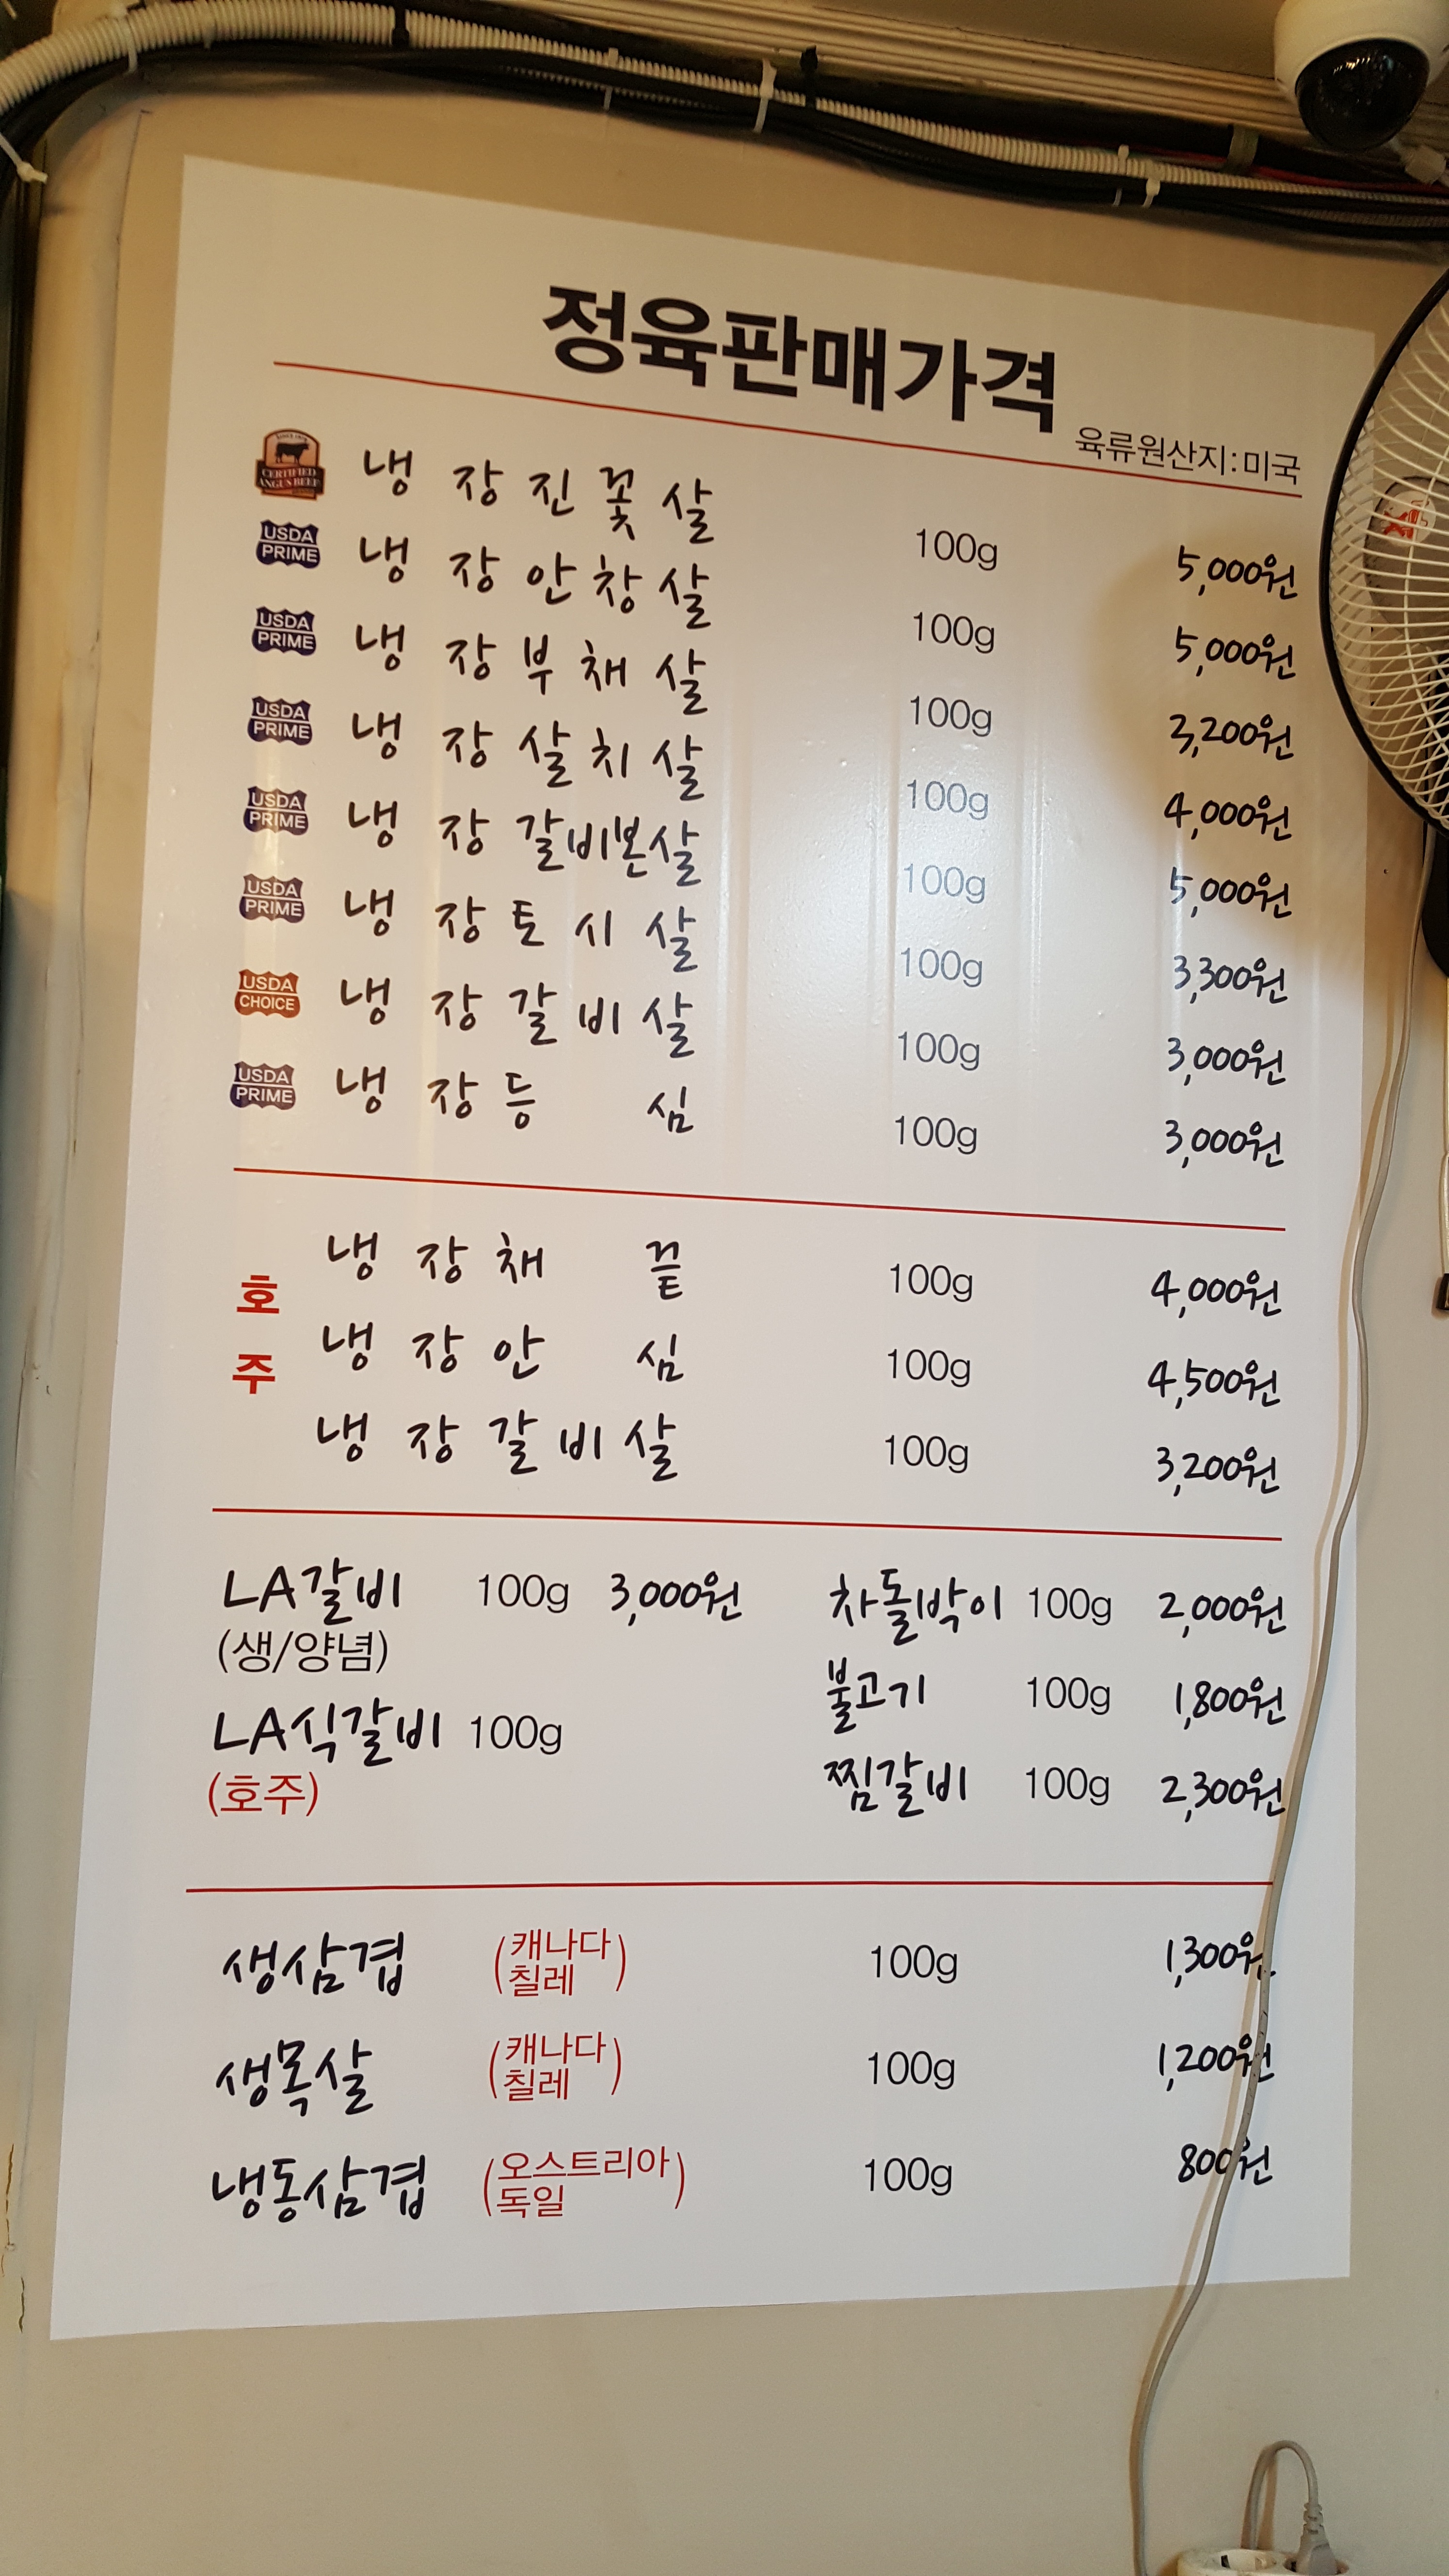 정육판매가격
육류원산지:미국
CERTIFIED ANGUS BEEF 냉장진꽃살 100g 5,000원
USDA PRIME 냉장안창살 100g 5,000원
USDA PRIME 냉장부채살 100g 3,200원
USDA PRIME 냉장살치살 100g 4,000원
USDA PRIME 냉장갈비본살 100g 5,000원
USDA PRIME 냉장토시살 100g 3,300원
USDA CHOICE 냉장갈비살 100g 3,000원
USDA PRIME 냉장등심 100g 3,000원
호주
냉장채끝 100g 4,000원
냉장안심 100g 4,500원
냉장갈비살 100g 3,200원
LA갈비 100g 3,000원
(생/양념)
LA식갈비 100g
(호주)
차돌박이 100g 2,000원
불고기 100g 1,800원
찜갈비 100g 2,300원
생삼겹 (캐나다 칠레) 100g 1,300원
생목살 (캐나다 칠레) 100g 1,200원
냉동삼겹 (오스트리아 독일) 100g 800원